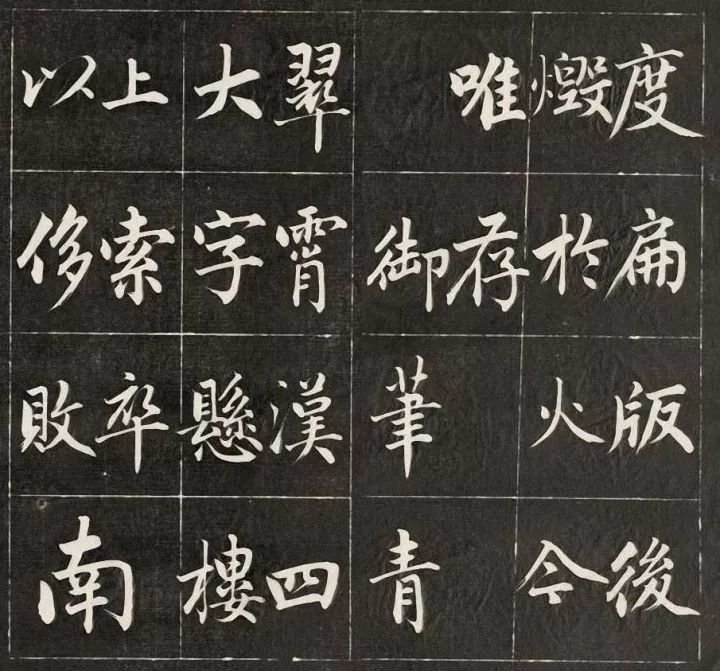 度扁版後
燬於火今
唯存
御筆青
翠霄漢四
大字懸樓
上索卒
以侈敗南